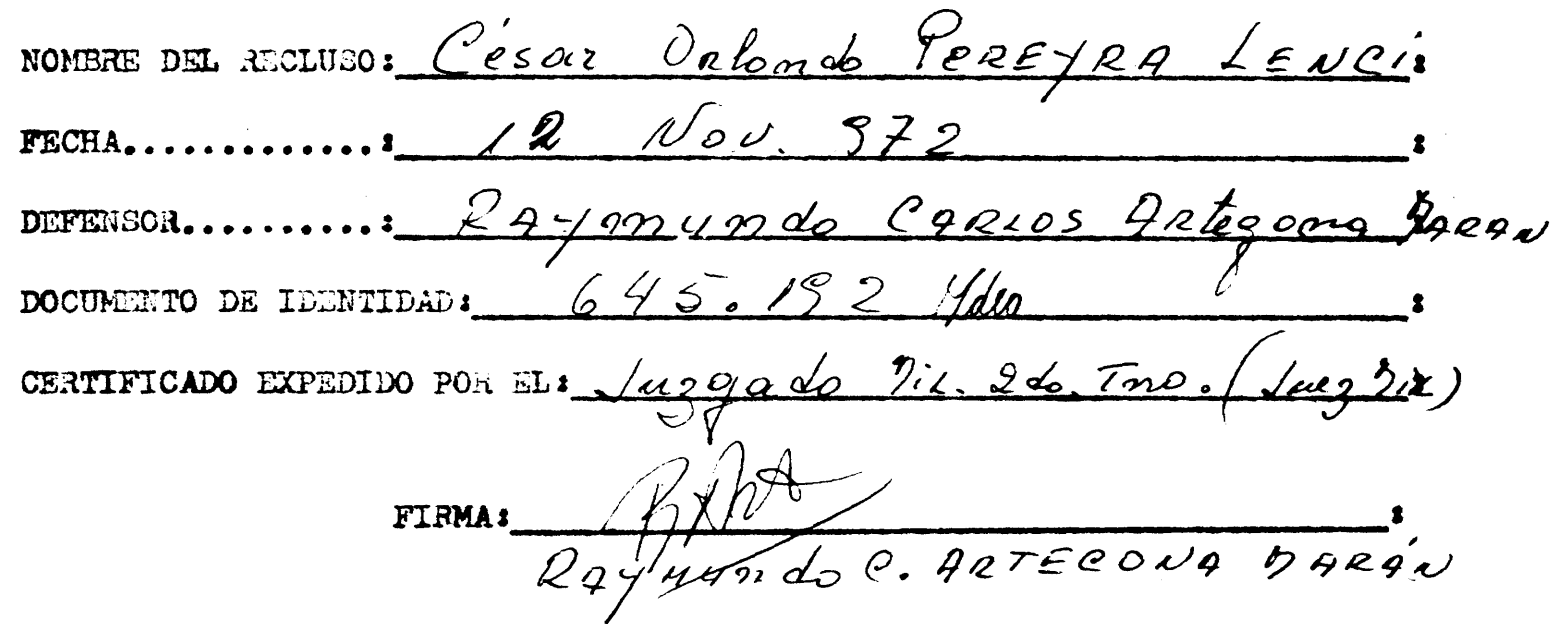 NOMBRE DEL RECLUSO: César Orlando PEREYRA LENCI:
FECHA.............: 12 Nov. 972 :
DEFENSOR..........: RAYmundo CARLOS Artegona MARAN
DOCUMENTO DE IDENTIDAD: 645.192 Mdeo :
CERTIFICADO EXPEDIDO POR EL: Juzgado Mil. 2do. Tno. (Juez Mix)
FIRMA: :
RAYmundo C. ARTECONA MARÁN